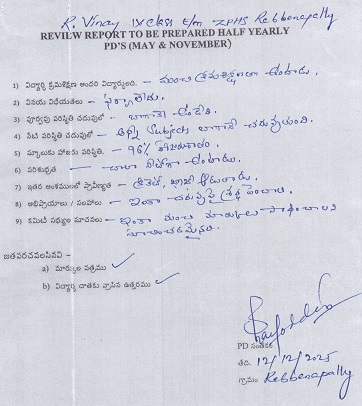 R. Vinay IX class E/m ZPHS Rebbenapally
REVIEW REPORT TO BE PREPARED HALF YEARLY
PD'S (MAY & NOVEMBER)
1) విద్యార్థి క్రమశిక్షణ అందరి విద్యార్థులది. - మంచి క్రమశిక్షణగా ఉంటాడు.
2) వినయ విధేయతలు -
3) పూర్వపు పరిస్థితి చదువులో - బాగానే ఉండేది.
4) నేటి పరిస్థితి చదువులో - అన్ని Subjects బాగానే చదువుతుంది.
5) స్కూలుకు హాజరు పరిస్థితి. - 96% హాజరుశాతం.
6) పరిశుభ్రత - చాలా నీట్‌గా ఉంటాడు.
7) ఇతర అంశములలో ప్రావీణ్యత - క్రికెట్, ఆడుతాడు.
8) అభిప్రాయాలు / సలహాలు - ఇంకా చదువుపై శ్రద్ధ పెంచాలి.
9) కమిటి సభ్యుల సూచనలు - ఇంకా మంచి మార్కులు సాధించాలని
సూచించడమైనది.
జతపరచవలసినవి -
a) మార్కుల పత్రము ✓
b) విద్యార్థి దాతకు వ్రాసిన ఉత్తరము ✓
PD సంతకం
తేది. 12/12/2025
గ్రామం Rebbenapally